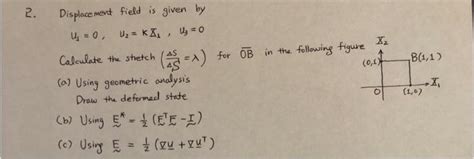 2. Displacement field is given by
U₁ = 0 , U₂ = K X₁ , U₃ = 0
Calculate the stretch (ΔS/ΔS = λ) for OB in the following figure
(a) Using geometric analysis
Draw the deformed state
(b) Using E* = 1/2 (FᵀF - I)
(c) Using E = 1/2 (∇u + ∇uᵀ)
X₂
(0,1)
B(1,1)
X₁
O
(1,0)